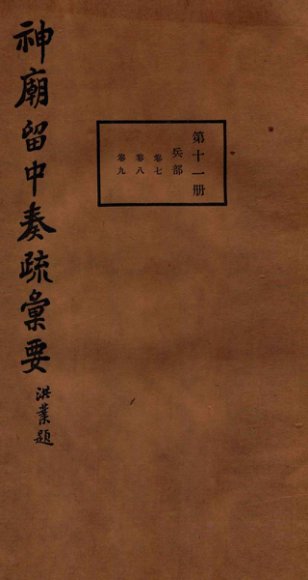 神廟留中奏疏彙要
洪業題
第十一册
兵部
卷七
卷八
卷九